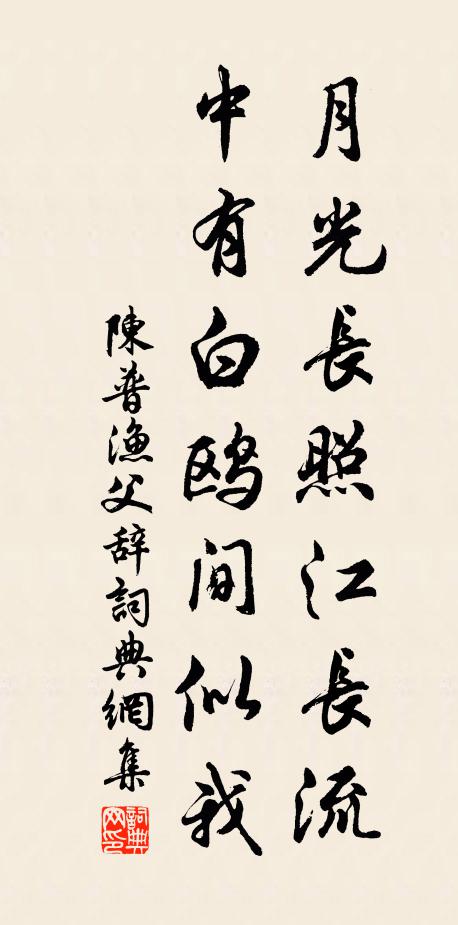 月光長照江長流
中有白鷗閒似我
陳普漁父辞詞典網集
詞典網印